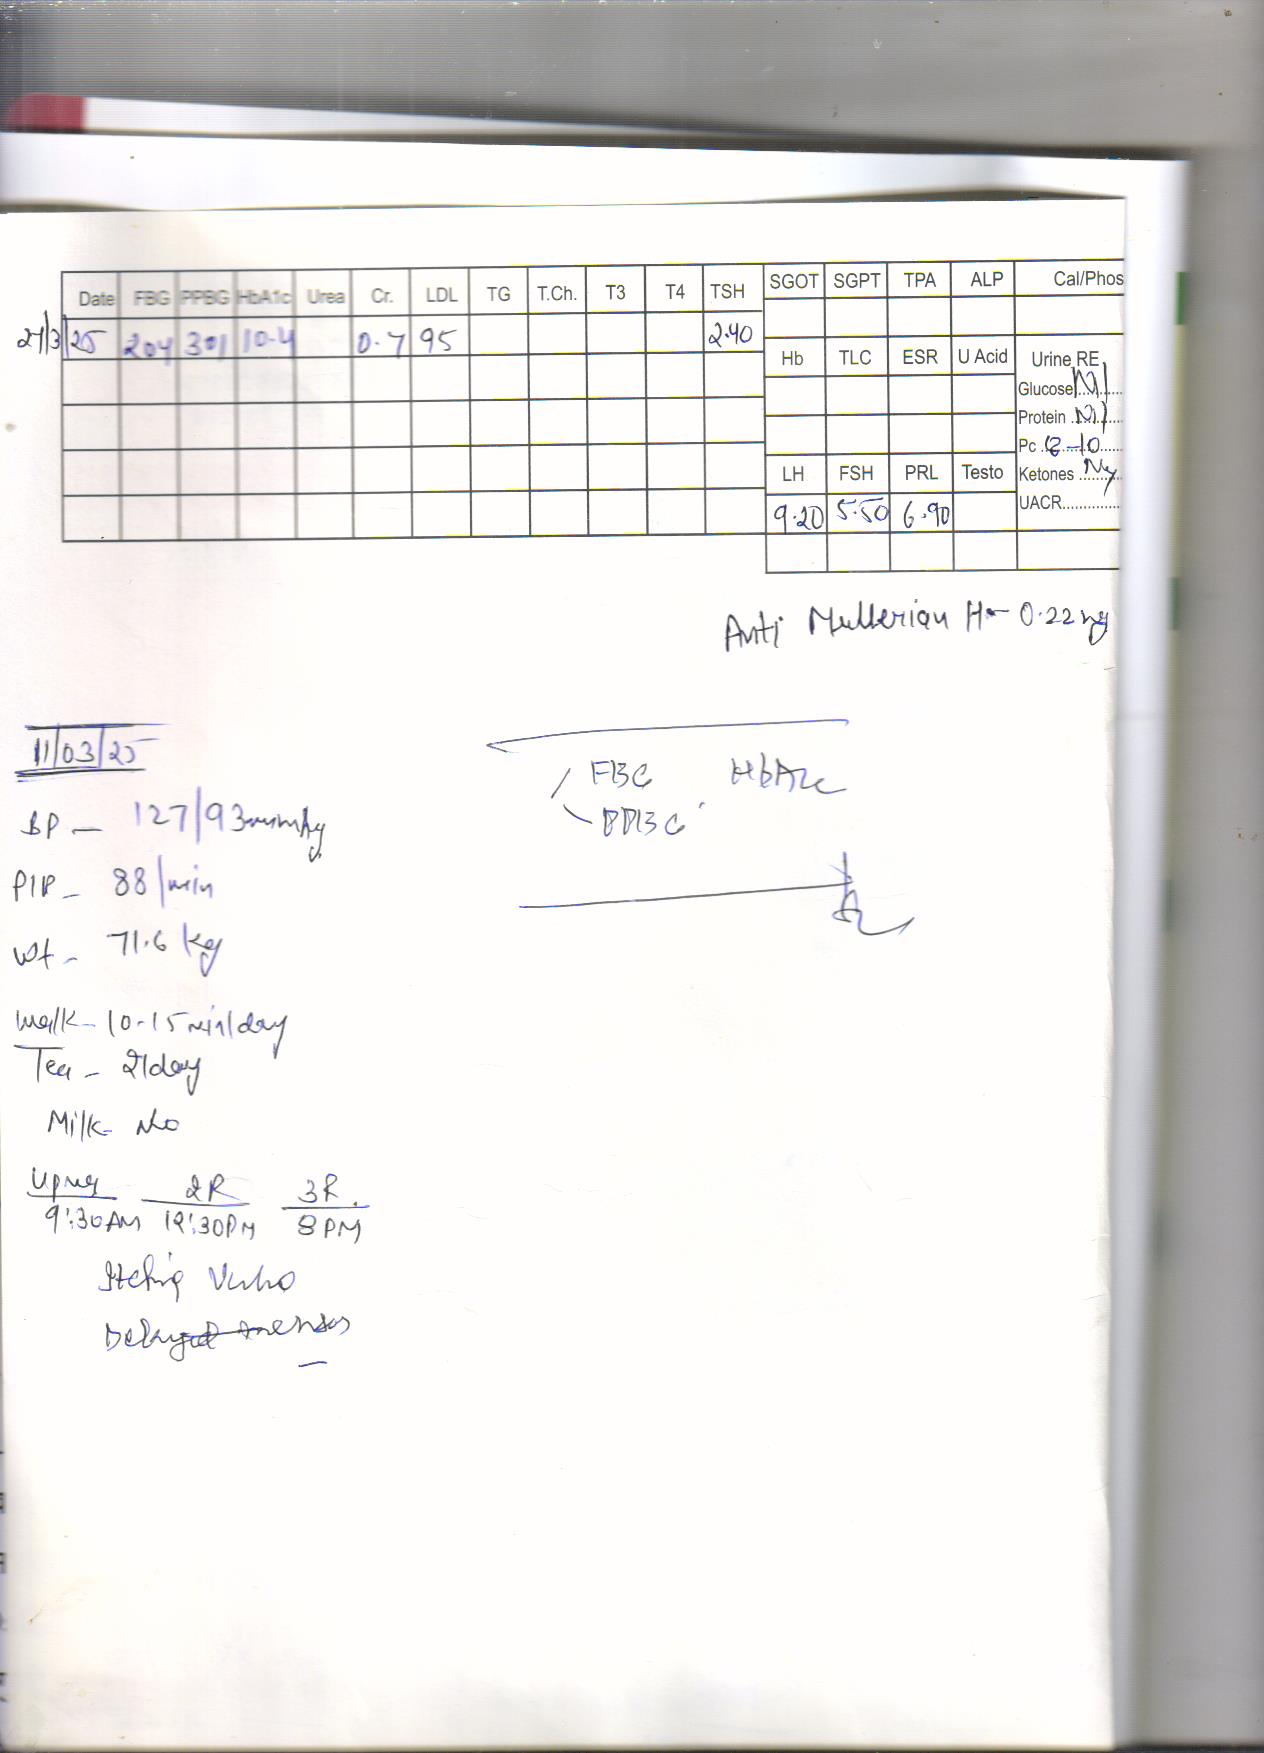 Date FBG PPBG HbA1c Urea Cr. LDL TG T.Ch. T3 T4 TSH SGOT SGPT TPA ALP Cal/Phos
27/3/25 204 301 10.4 0.7 95 2.40
Hb TLC ESR U Acid Urine RE
Glucose Nil
Protein Nil
Pc 8-10
LH FSH PRL Testo Ketones
9.20 5.50 6.90 UACR
Anti Mullerian H - 0.22 ng
11/03/25
FBG HbA1c
PPBG
BP - 127/93 mmHg
88/min
Wt - 71.6 kg
Walk - 10-15 min/day
Tea - 2/day
Milk - No
2R 3R
9:30AM 12:30PM 8PM
Itching
Delayed menses